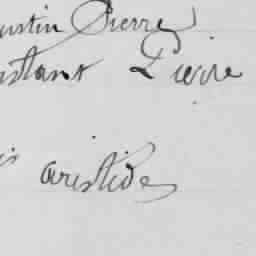 ustin Pierre
nstant Pierre
is aristide